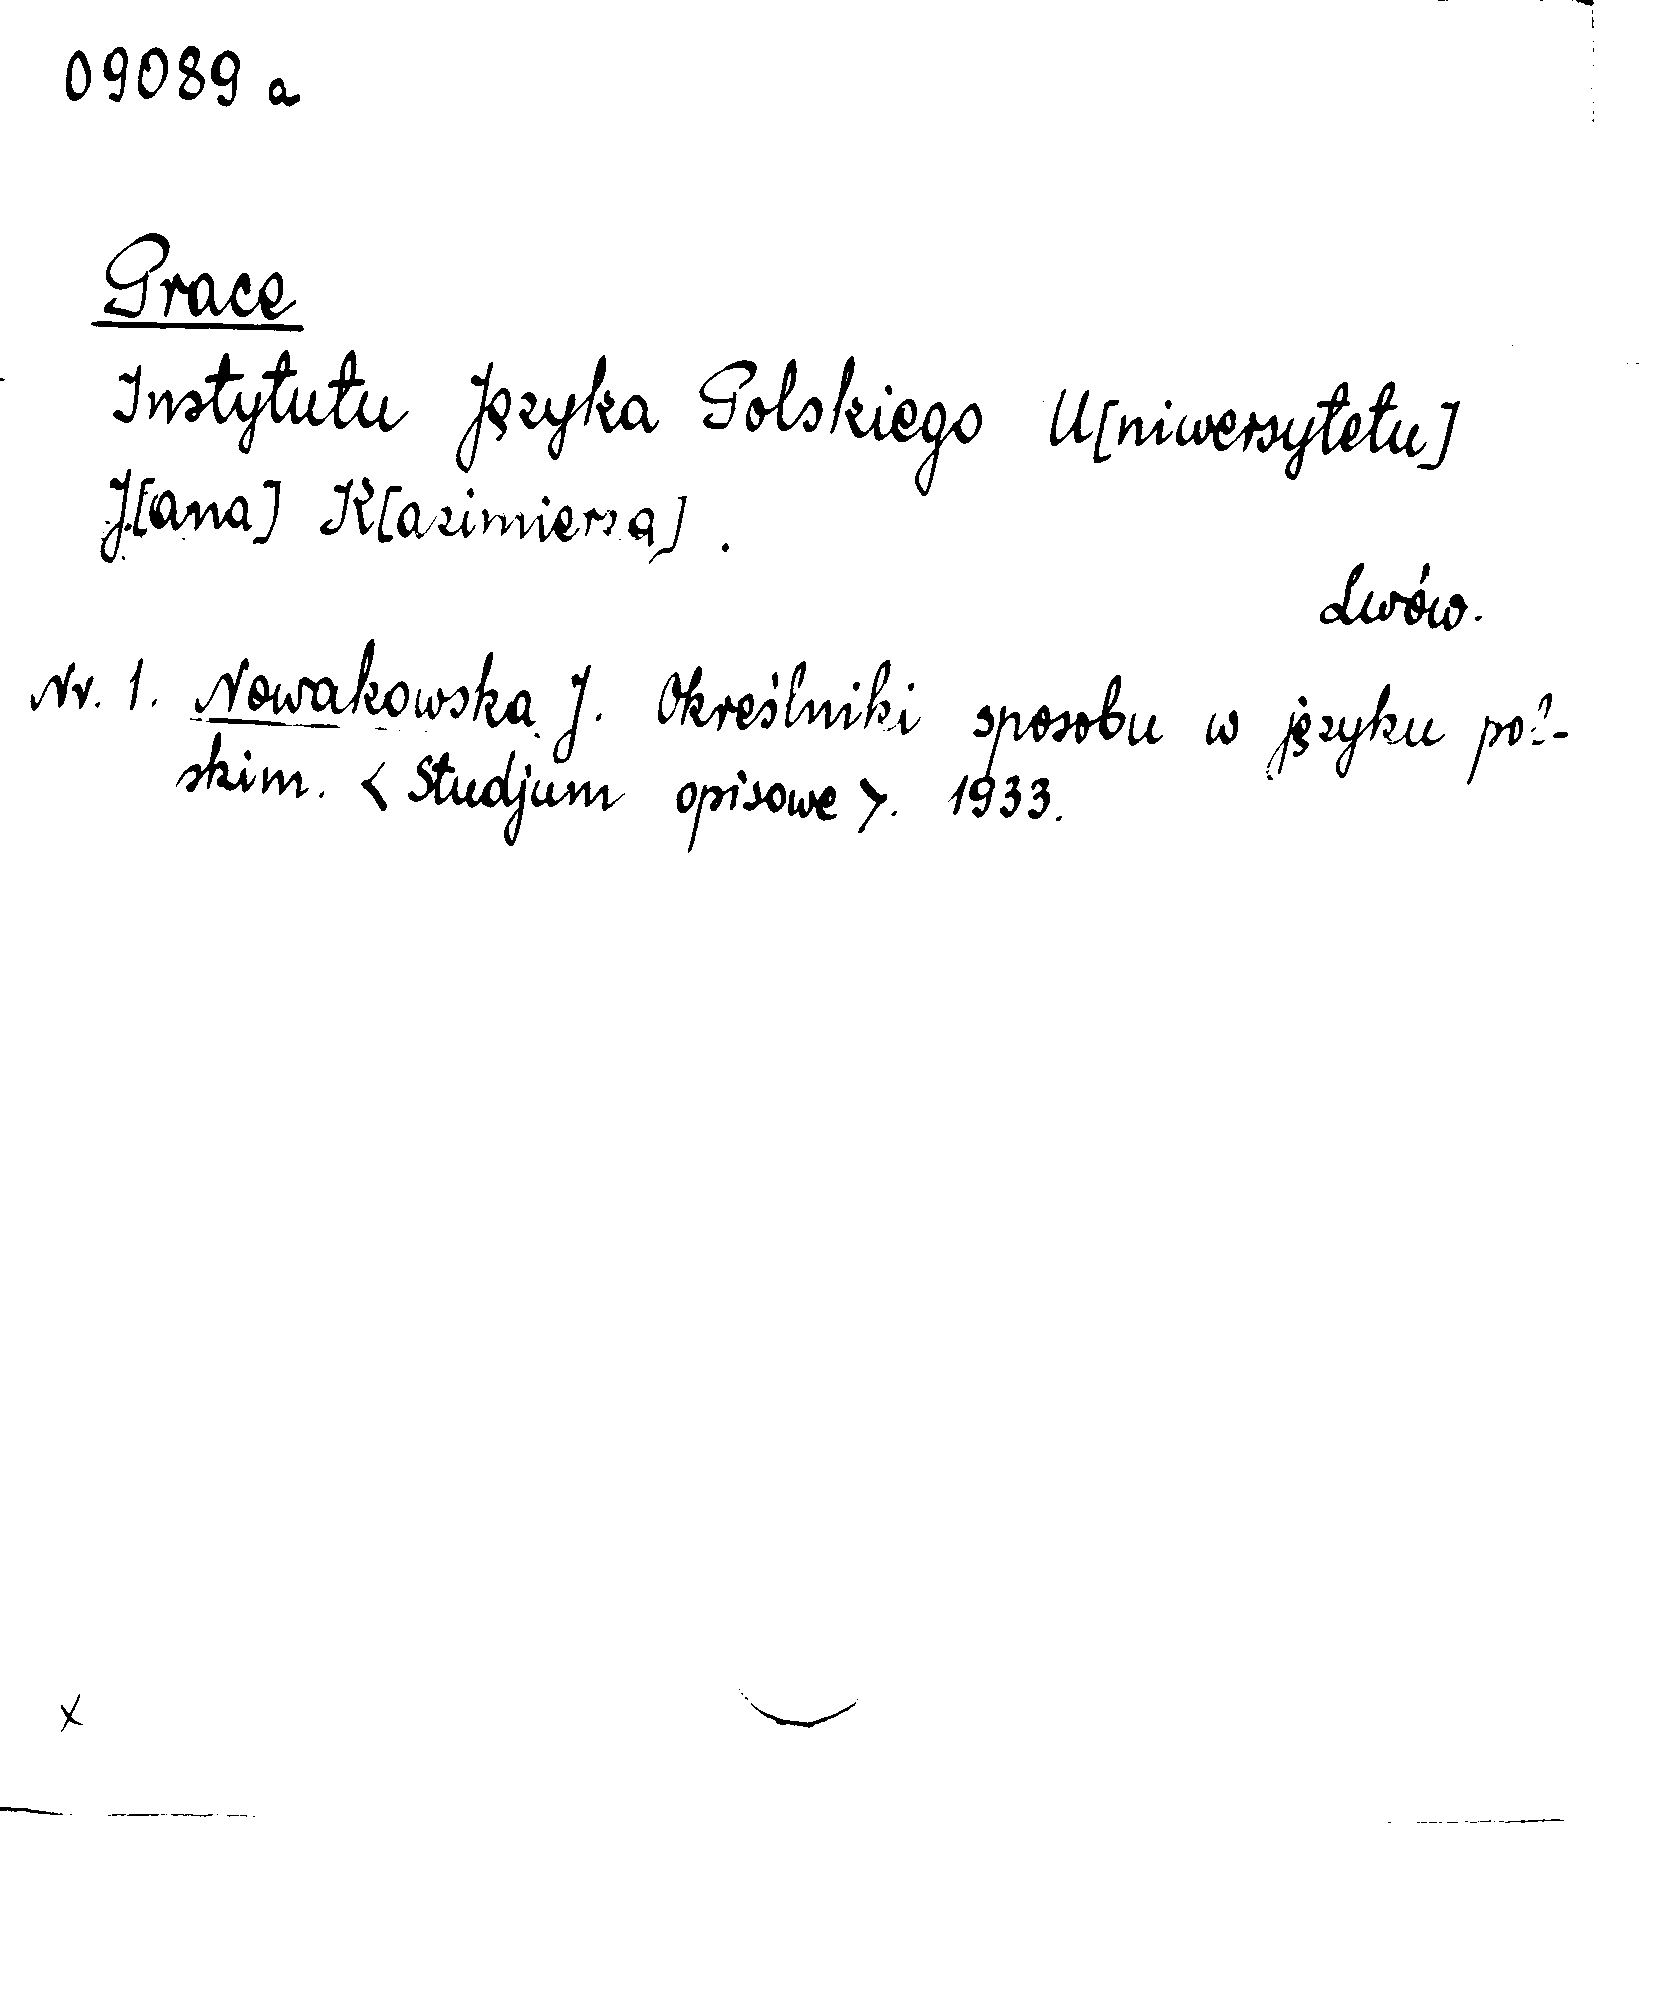 09089 a
Prace
Instytutu Języka Polskiego U[niwersytetu]
J[ana] K[azimierza].
Lwów.
Nr. 1. Nowakowska J. Określniki sposobu w języku pol-
skim. <Studjum opisowe>. 1933.
x